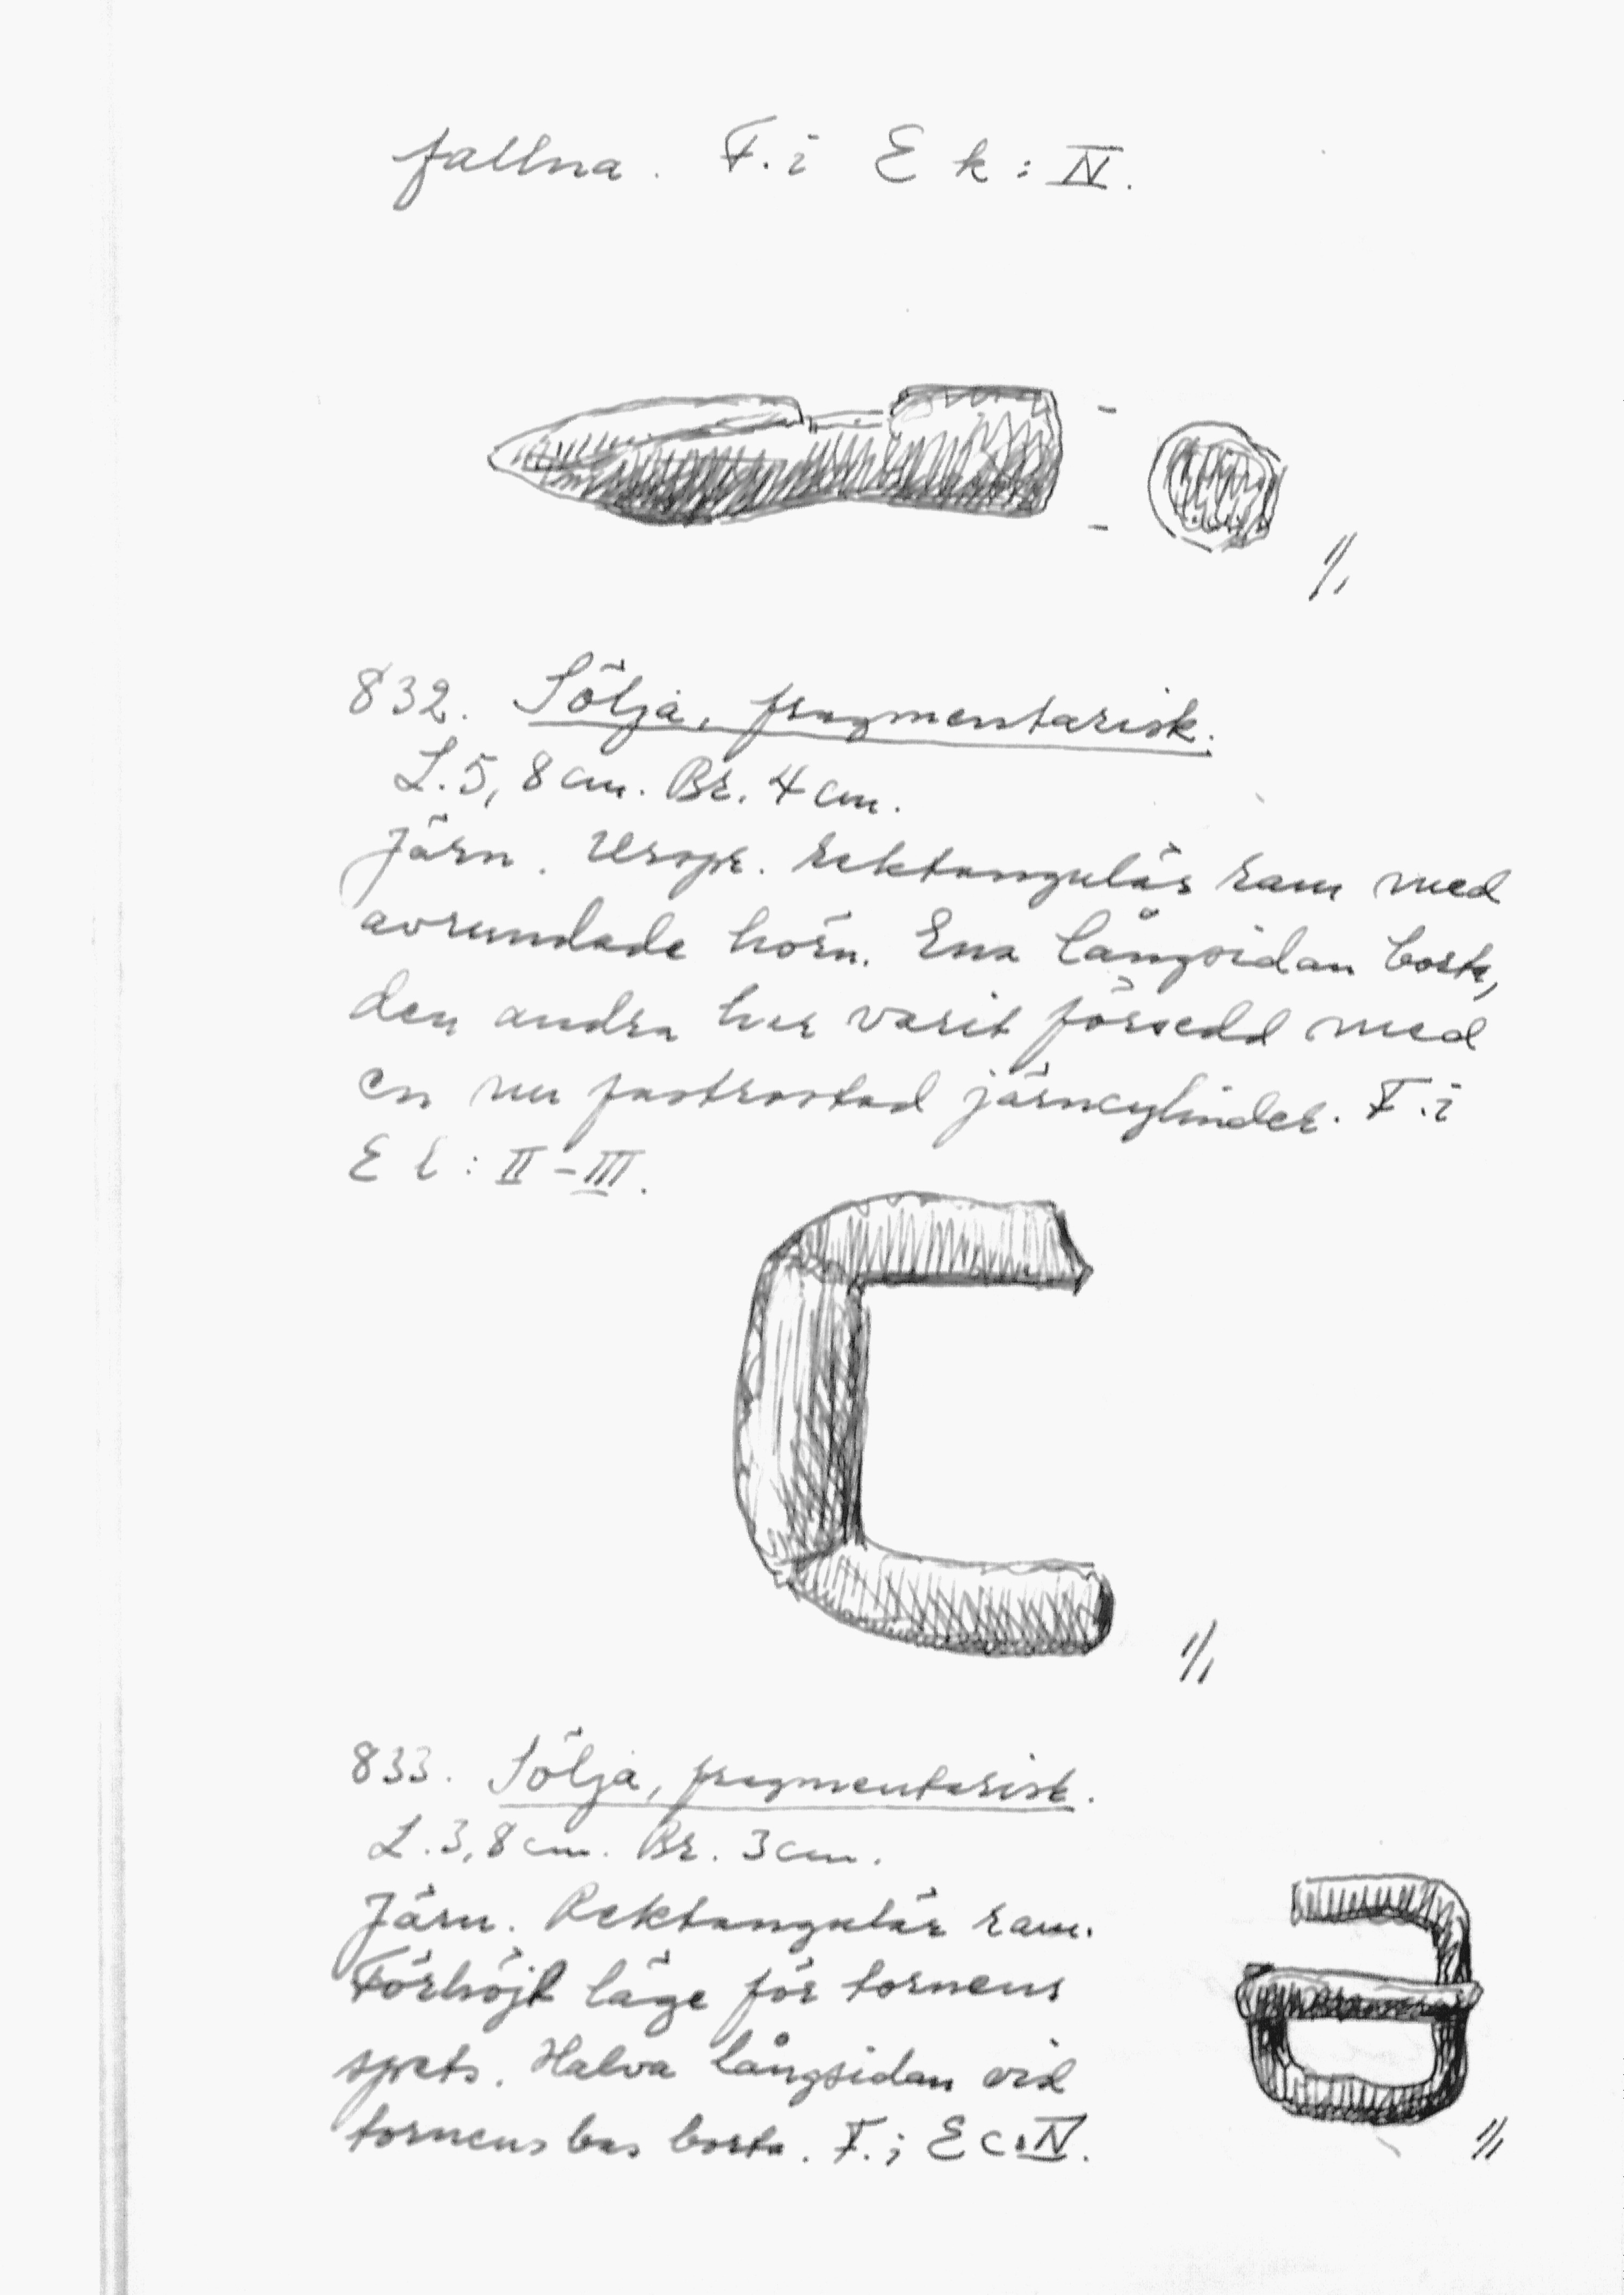 fallna. F. i E k : IV.
1/1
832. Sölja, fragmentarisk.
L. 5,8 cm. Br. 4 cm.
Järn. Urspr. rektangulär ram med
avrundade hörn. Ena långsidan borta,
den andra har varit försedd med
en nu fastrostad järncylinder. F. i
E l : II - III.
1/1
833. Sölja, fragmentarisk.
L. 3,8 cm. Br. 3 cm.
Järn. Rektangulär ram.
Förhöjt läge för tornens
spets. Halva långsidan vid
tornens bas borta. F. i E c : IV.
1/1